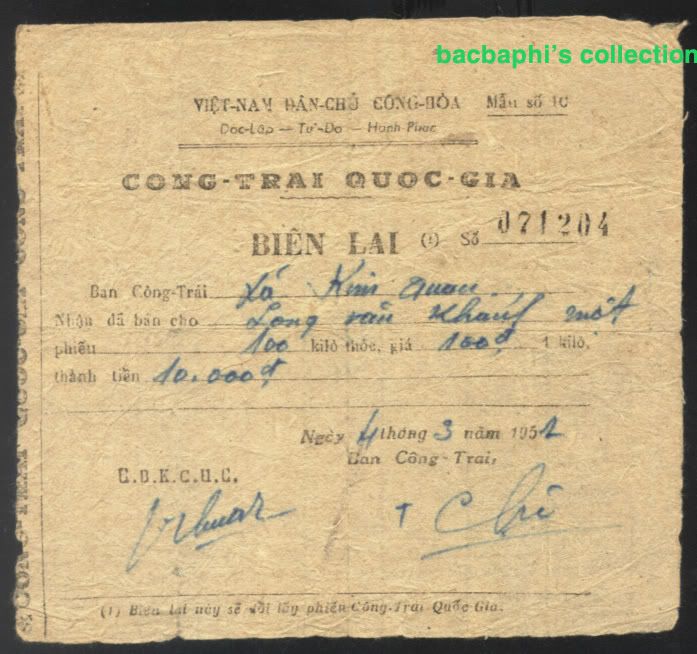 bacbaphi's collection
VIỆT-NAM DÂN-CHỦ CỘNG-HÒA Mẫu số 1C
Độc-Lập — Tự-Do — Hạnh-Phúc
CÔNG-TRÁI QUỐC-GIA
BIÊN LAI (1) Số 071204
Ban Công-Trái Xá Kim quan
Nhận đã bán cho Long văn Khánh một
phiếu 100 kilô thóc, giá 100đ 1 kilô,
thành tiền 10.000đ
Ngày 4 tháng 3 năm 1952
Ban Công-Trái,
C.B.K.C.U.C.
Chi
(1) Biên lai này sẽ đổi lấy phiếu Công-Trái Quốc-Gia.